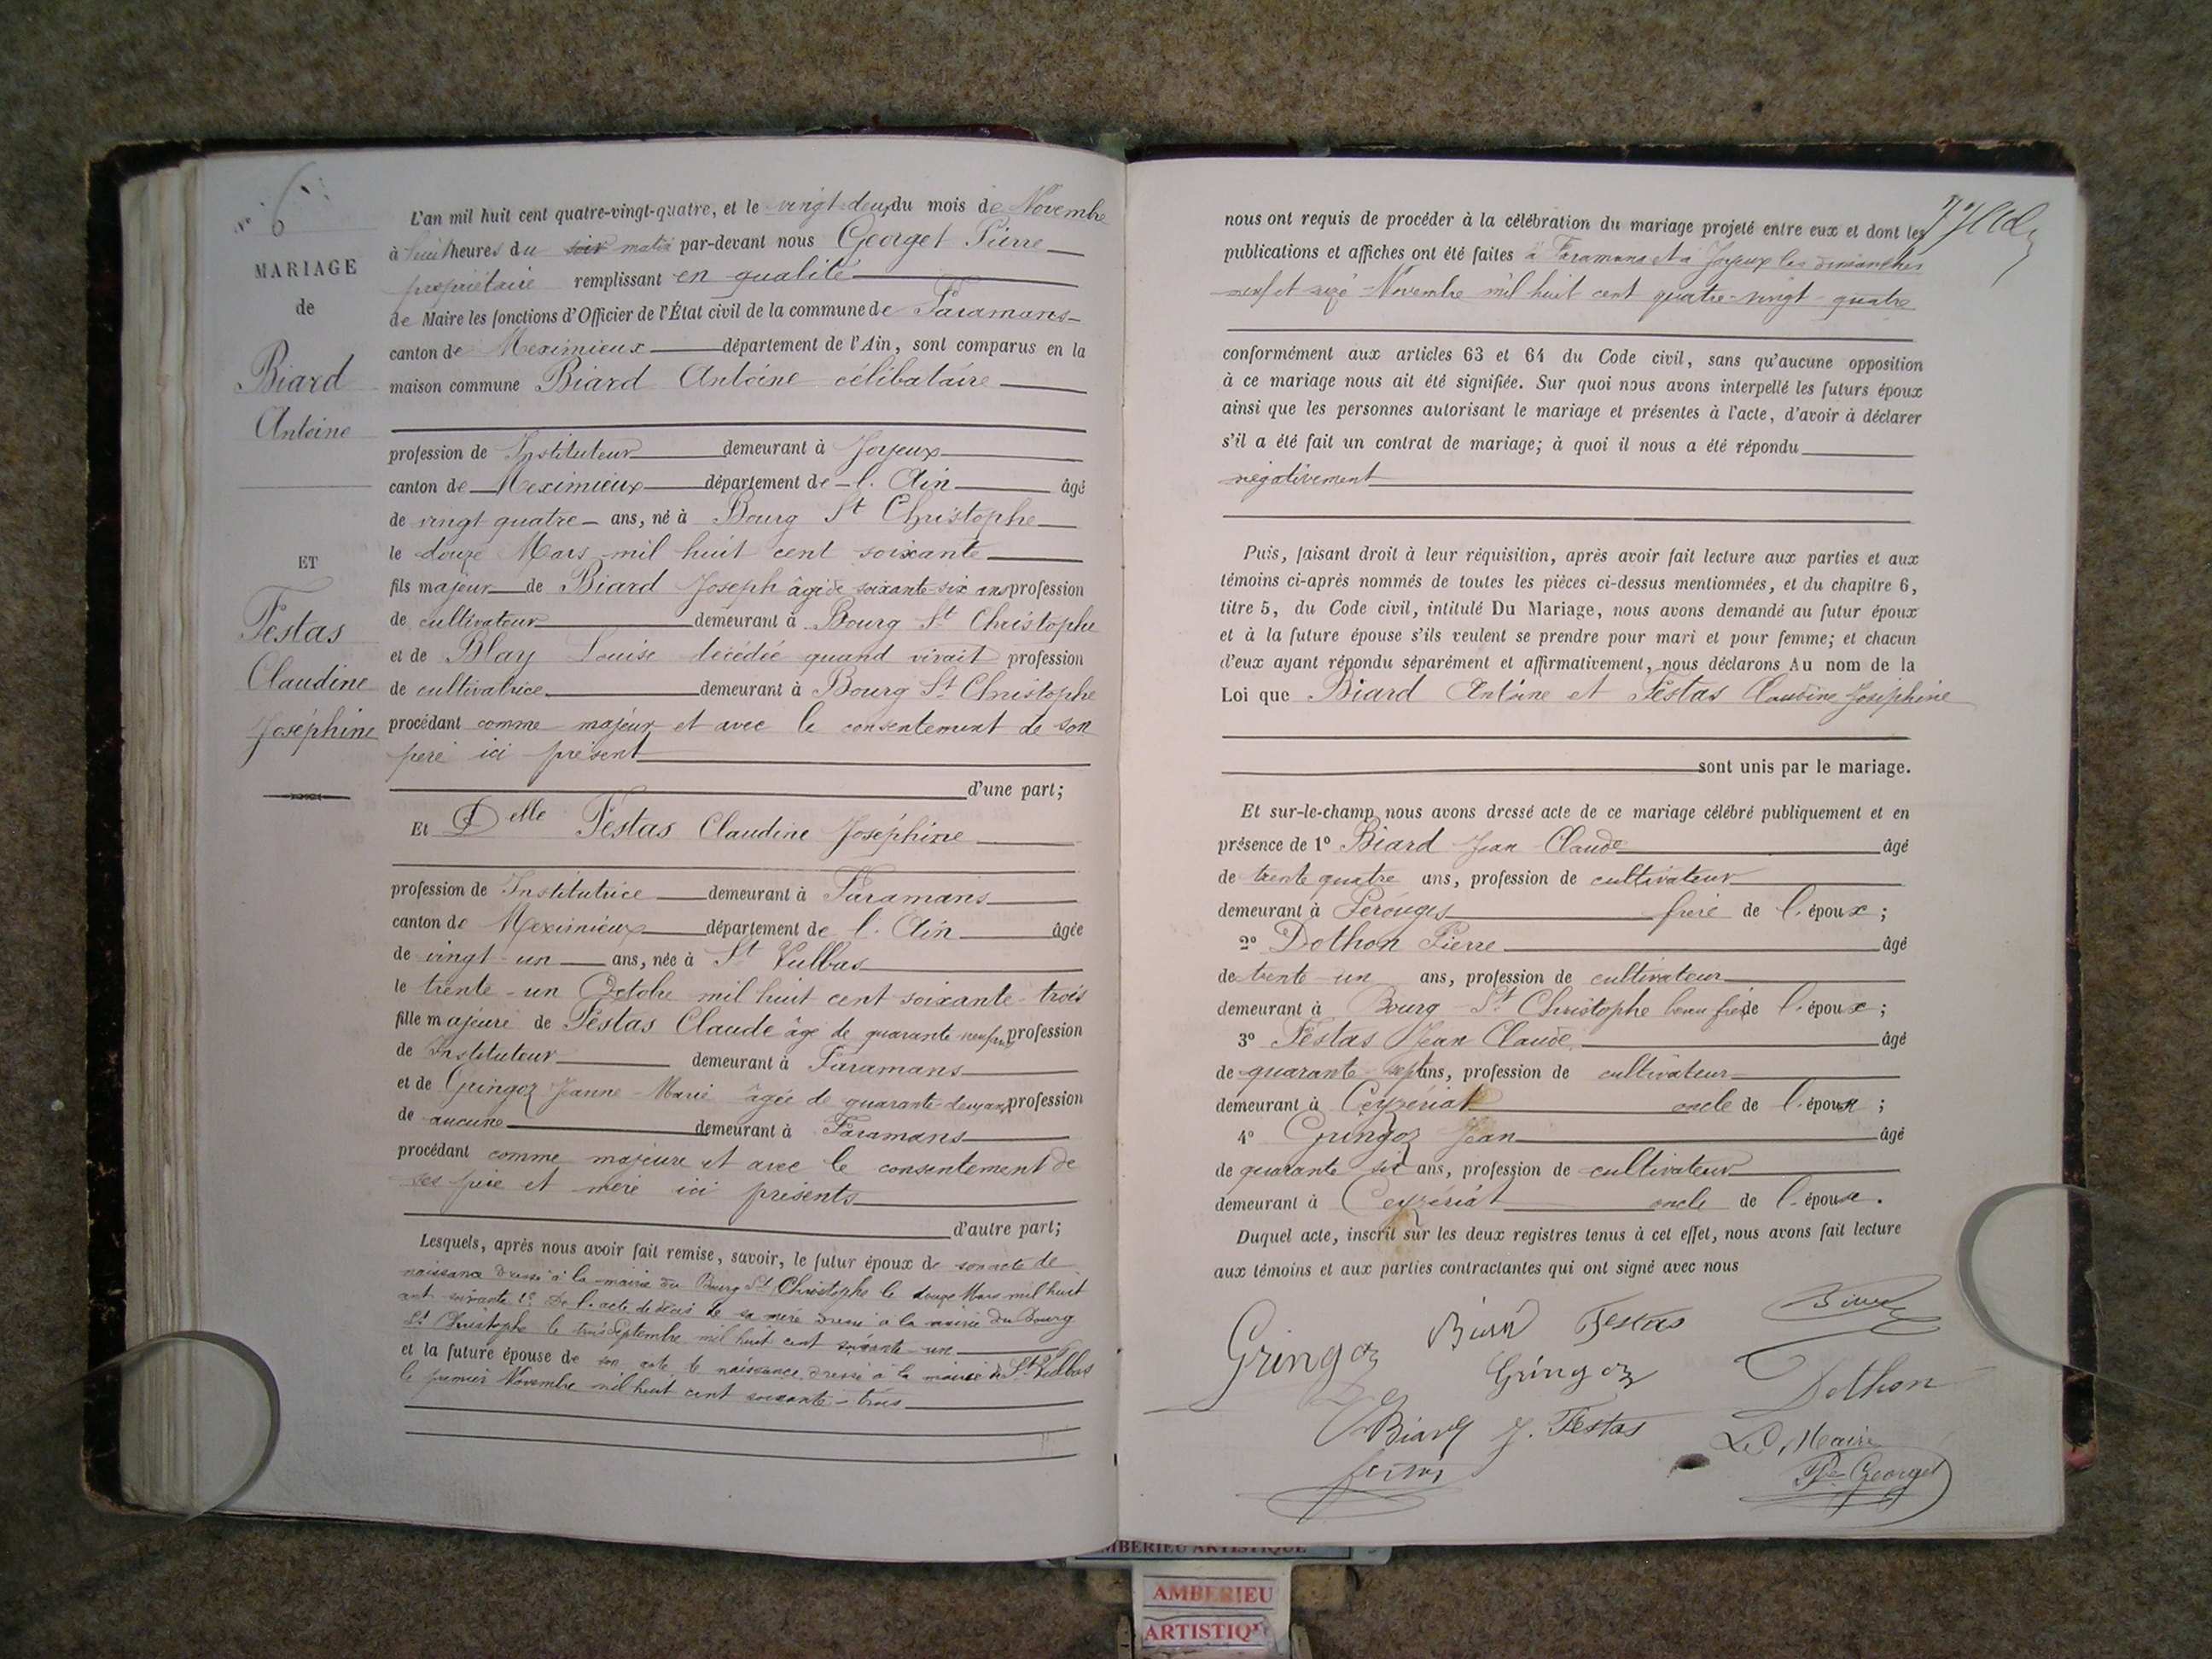 N° 6
MARIAGE
de
Biard
Antoine
ET
Festas
Claudine
Joséphine
L'an mil huit cent quatre-vingt-quatre, et le vingt-deux du mois de Novembre
à huit heures du soir matin par-devant nous Georget Pierre
propriétaire remplissant en qualité
de Maire les fonctions d'Officier de l'État civil de la commune de Faramans
canton de Meximieux département de l'Ain, sont comparus en la
maison commune Biard Antoine célibataire
profession de Instituteur demeurant à Joyeux
canton de Meximieux département de l'Ain âgé
de vingt quatre ans, né à Bourg St Christophe
le douze Mars mil huit cent soixante
fils majeur de Biard Joseph âgé de soixante-six ans profession
de cultivateur demeurant à Bourg St Christophe
et de Blay Louise décédée quand vivait profession
de cultivatrice demeurant à Bourg St Christophe
procédant comme majeur et avec le consentement de son
père ici présent
d'une part;
Et Delle Festas Claudine Joséphine
profession de Institutrice demeurant à Faramans
canton de Meximieux département de l'Ain âgée
de vingt-un ans, née à St Vulbas
le trente-un Octobre mil huit cent soixante-trois
fille majeure de Festas Claude âgé de quarante-neuf ans profession
de Instituteur demeurant à Faramans
et de Gringoz Jeanne-Marie âgée de quarante-deux ans profession
de aucune demeurant à Faramans
procédant comme majeure et avec le consentement de
ses père et mère ici présents
d'autre part;
Lesquels, après nous avoir fait remise, savoir, le futur époux de son acte de
naissance dressé à la mairie du Bourg St Christophe le douze Mars mil huit
cent soixante 2° De l'acte de décès de sa mère dressé à la mairie du Bourg
St Christophe le trois Septembre mil huit cent soixante-un
et la future épouse de son acte de naissance dressé à la mairie de St Vulbas
le premier Novembre mil huit cent soixante-trois
nous ont requis de procéder à la célébration du mariage projeté entre eux et dont les
publications et affiches ont été faites à Faramans et à Joyeux les dimanches
neuf et seize Novembre mil huit cent quatre-vingt-quatre
conformément aux articles 63 et 64 du Code civil, sans qu'aucune opposition
à ce mariage nous ait été signifiée. Sur quoi nous avons interpellé les futurs époux
ainsi que les personnes autorisant le mariage et présentes à l'acte, d'avoir à déclarer
s'il a été fait un contrat de mariage; à quoi il nous a été répondu
négativement
Puis, faisant droit à leur réquisition, après avoir fait lecture aux parties et aux
témoins ci-après nommés de toutes les pièces ci-dessus mentionnées, et du chapitre 6,
titre 5, du Code civil, intitulé Du Mariage, nous avons demandé au futur époux
et à la future épouse s'ils veulent se prendre pour mari et pour femme; et chacun
d'eux ayant répondu séparément et affirmativement, nous déclarons Au nom de la
Loi que Biard Antoine et Festas Claudine Joséphine
sont unis par le mariage.
Et sur-le-champ nous avons dressé acte de ce mariage célébré publiquement et en
présence de 1° Biard Jean Claude âgé
de trente quatre ans, profession de cultivateur
demeurant à Pérouges frère de l'époux;
2° Dothon Pierre âgé
de trente-un ans, profession de cultivateur
demeurant à Bourg-St Christophe beau frère de l'époux;
3° Festas Jean Claude âgé
de quarante-sept ans, profession de cultivateur
demeurant à Ceyzériat oncle de l'épouse;
4° Gringoz Jean âgé
de quarante six ans, profession de cultivateur
demeurant à Ceyzériat oncle de l'épouse.
Duquel acte, inscrit sur les deux registres tenus à cet effet, nous avons fait lecture
aux témoins et aux parties contractantes qui ont signé avec nous
Gringoz Biard Festas Biard
Gringoz Dothon
Biard J. Festas Le Maire
Pre Georget
AMBERIEU ARTISTIQUE
AMBERIEU
ARTISTIQUE